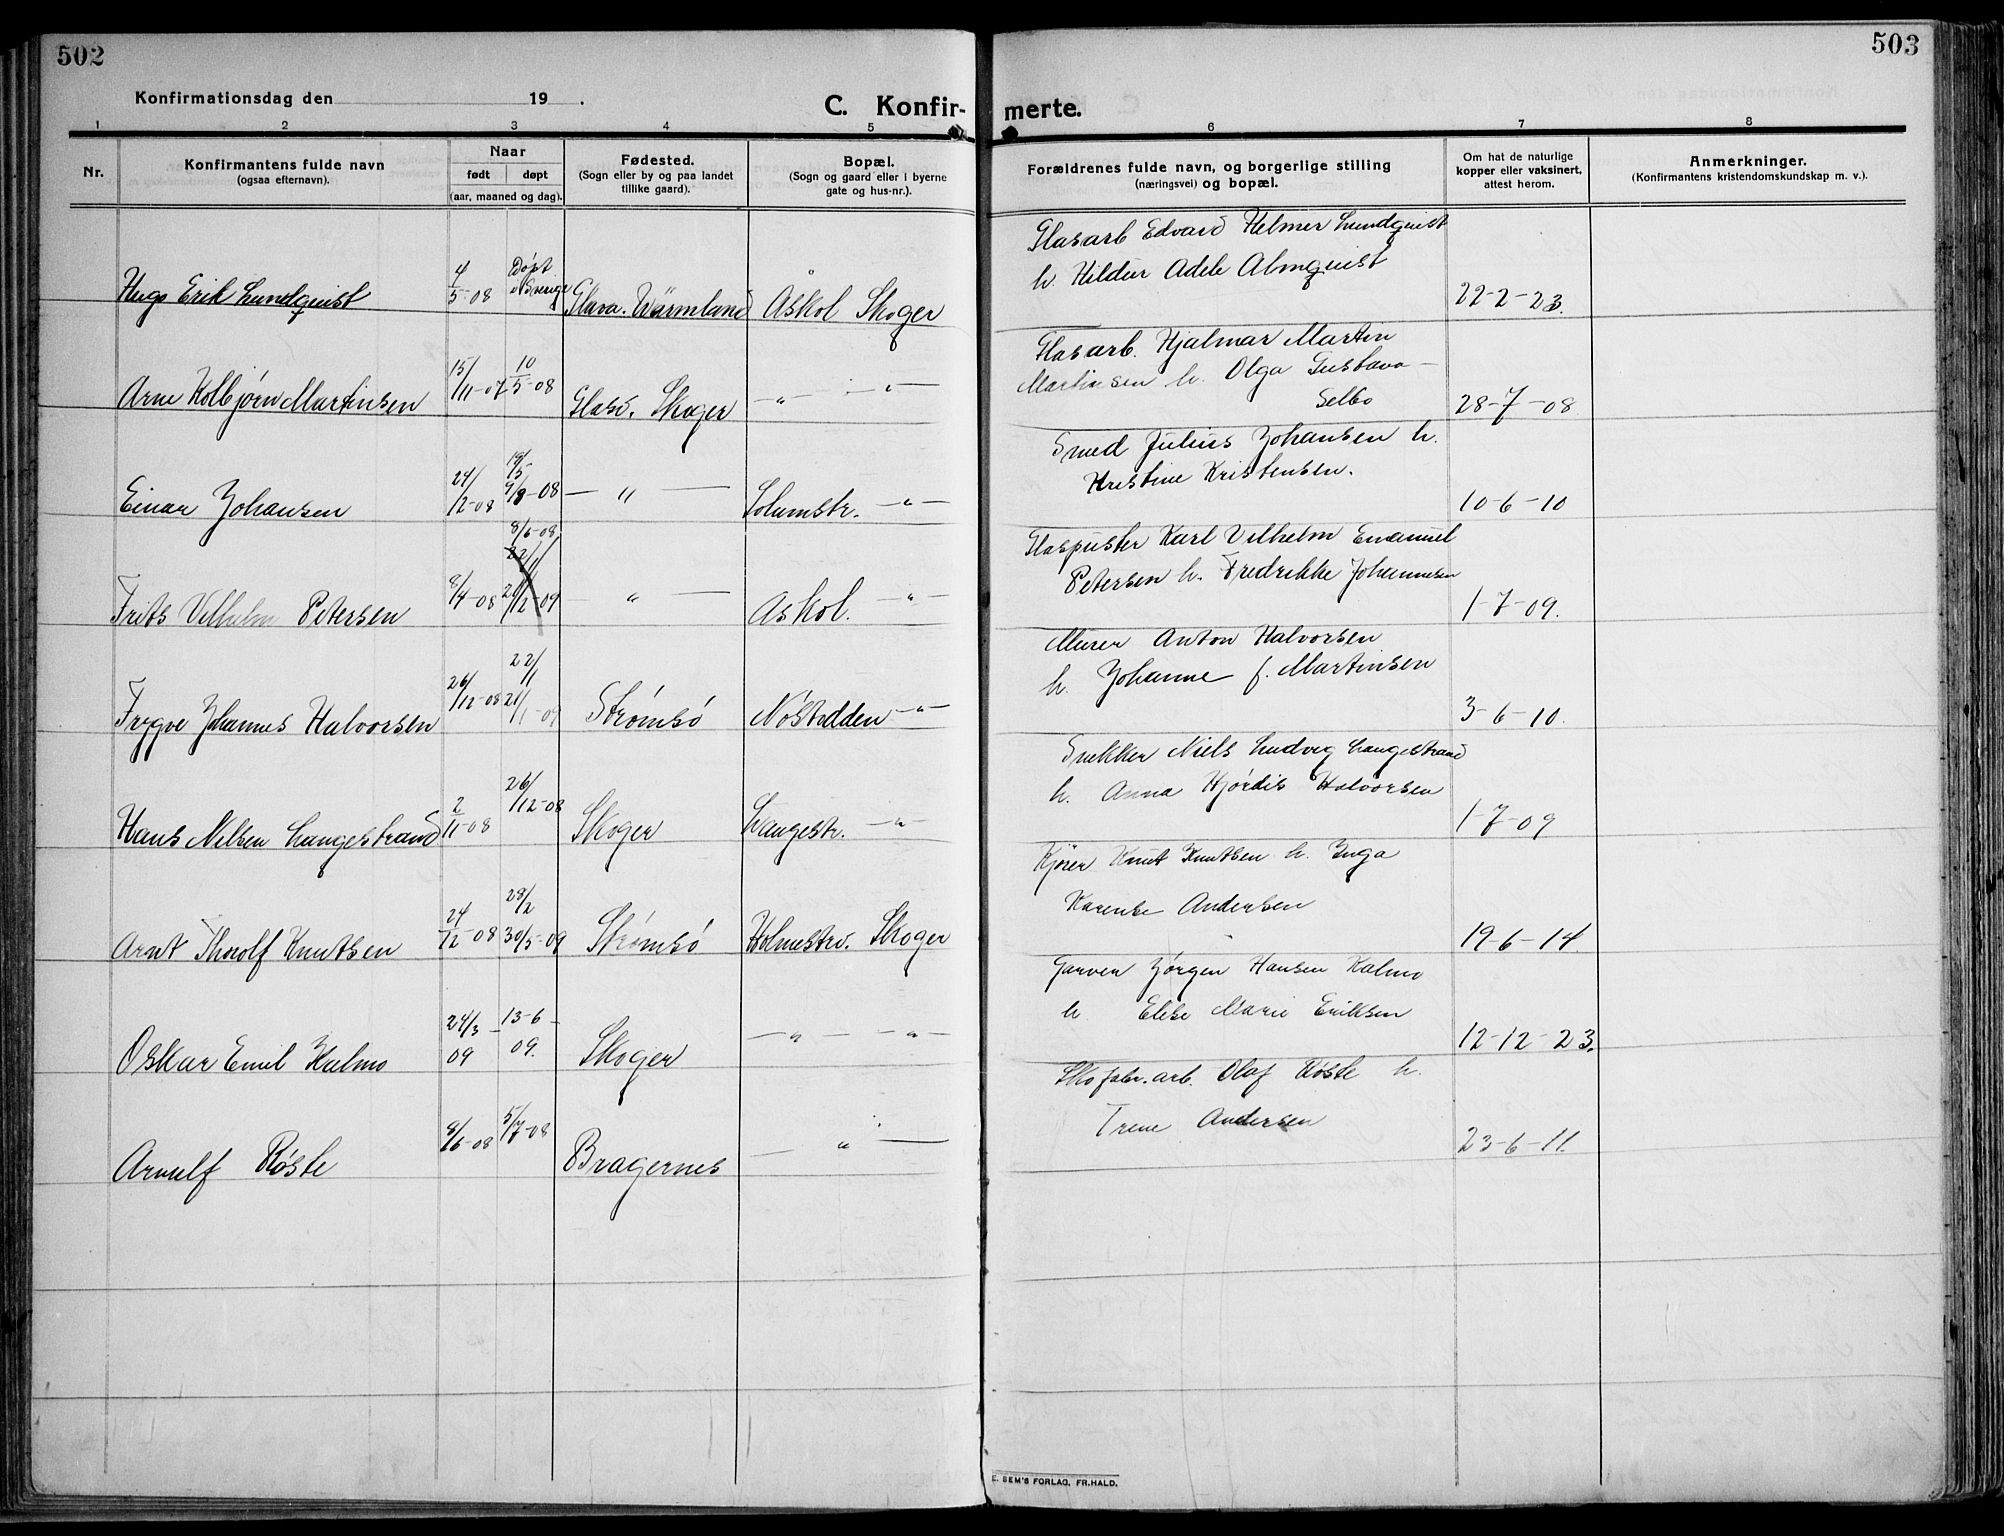 502
503
Konfirmationsdag den 19 .
C. Konfir- merte.
1 2 3 4 5 6 7 8
Nr.
Konfirmantens fulde navn
(ogsaa efternavn).
Naar
født døpt
(aar, maaned og dag).
Fødested.
(Sogn eller by og paa landet
tillike gaard).
Bopæl.
(Sogn og gaard eller i byerne
gate og hus-nr.).
Forældrenes fulde navn, og borgerlige stilling
(næringsvei) og bopæl.
Om hat de naturlige
kopper eller vaksinert,
attest herom.
Anmerkninger.
(Konfirmantens kristendomskundskap m. v.).
Glasarb Edvard Helmer Lundquist
h. Hildur Adele Almquist
Hugo Erik Lundquist 4/5-08 Døpt i Sverige Glava. Wärmland Åskol Skoger 22-2-23.
Glasarb. Hjalmar Martin
Martinsen h. Olga Gustava
Selbo
Arne Kolbjørn Martinsen 15/11-07 10/5-08 Glasv. Skoger — " — — " — 28-7-08
Smed Julius Johansen h.
Kristine Kristensen.
Einar Johansen 24/2-08 — " — Solumstr. — " — 10-6-10
Glaspuster Karl Vilhelm Emanuel
Petersen h. Fredrikke Johannesen
Frits Vilhelm Petersen 8/4-08 8/6-08 — " — Askol. — " — 1-7-09.
Murer Anton Halvorsen
h. Johanne f. Martinsen
Trygve Johannes Halvorsen 26/12-08 22/1 21/1-09 Strømsø Nøstedden — " — 3-6-10.
Snekker Niels Ludvig Langestrand
h. Anna Hjørdis Halvorsen
Hans Nilsen Langestrand 2/11-08 26/12-08 Skoger Langestr. — " — 1-7-09
Kjører Knut Knutsen h. Inga
Karense Andersen
Arnt Thorolf Knutsen 24/12-08 28/2 30/5-09 Strømsø Holmestrv. Skoger 19-6-14.
Garver Jørgen Hansen Kalmo
h. Elise Marie Eriksen
Oskar Emil Kalmo 24/3-09 13-6-09. Skoger — " — — " — 12-12-23.
Skofabr.arb. Olaf Røste h.
Trene Andersen
Arnulf Røste 8/6-08 5/7-08 Bragernes — " — 23-6-11.
E. SEM'S FORLAG, FR.HALD.